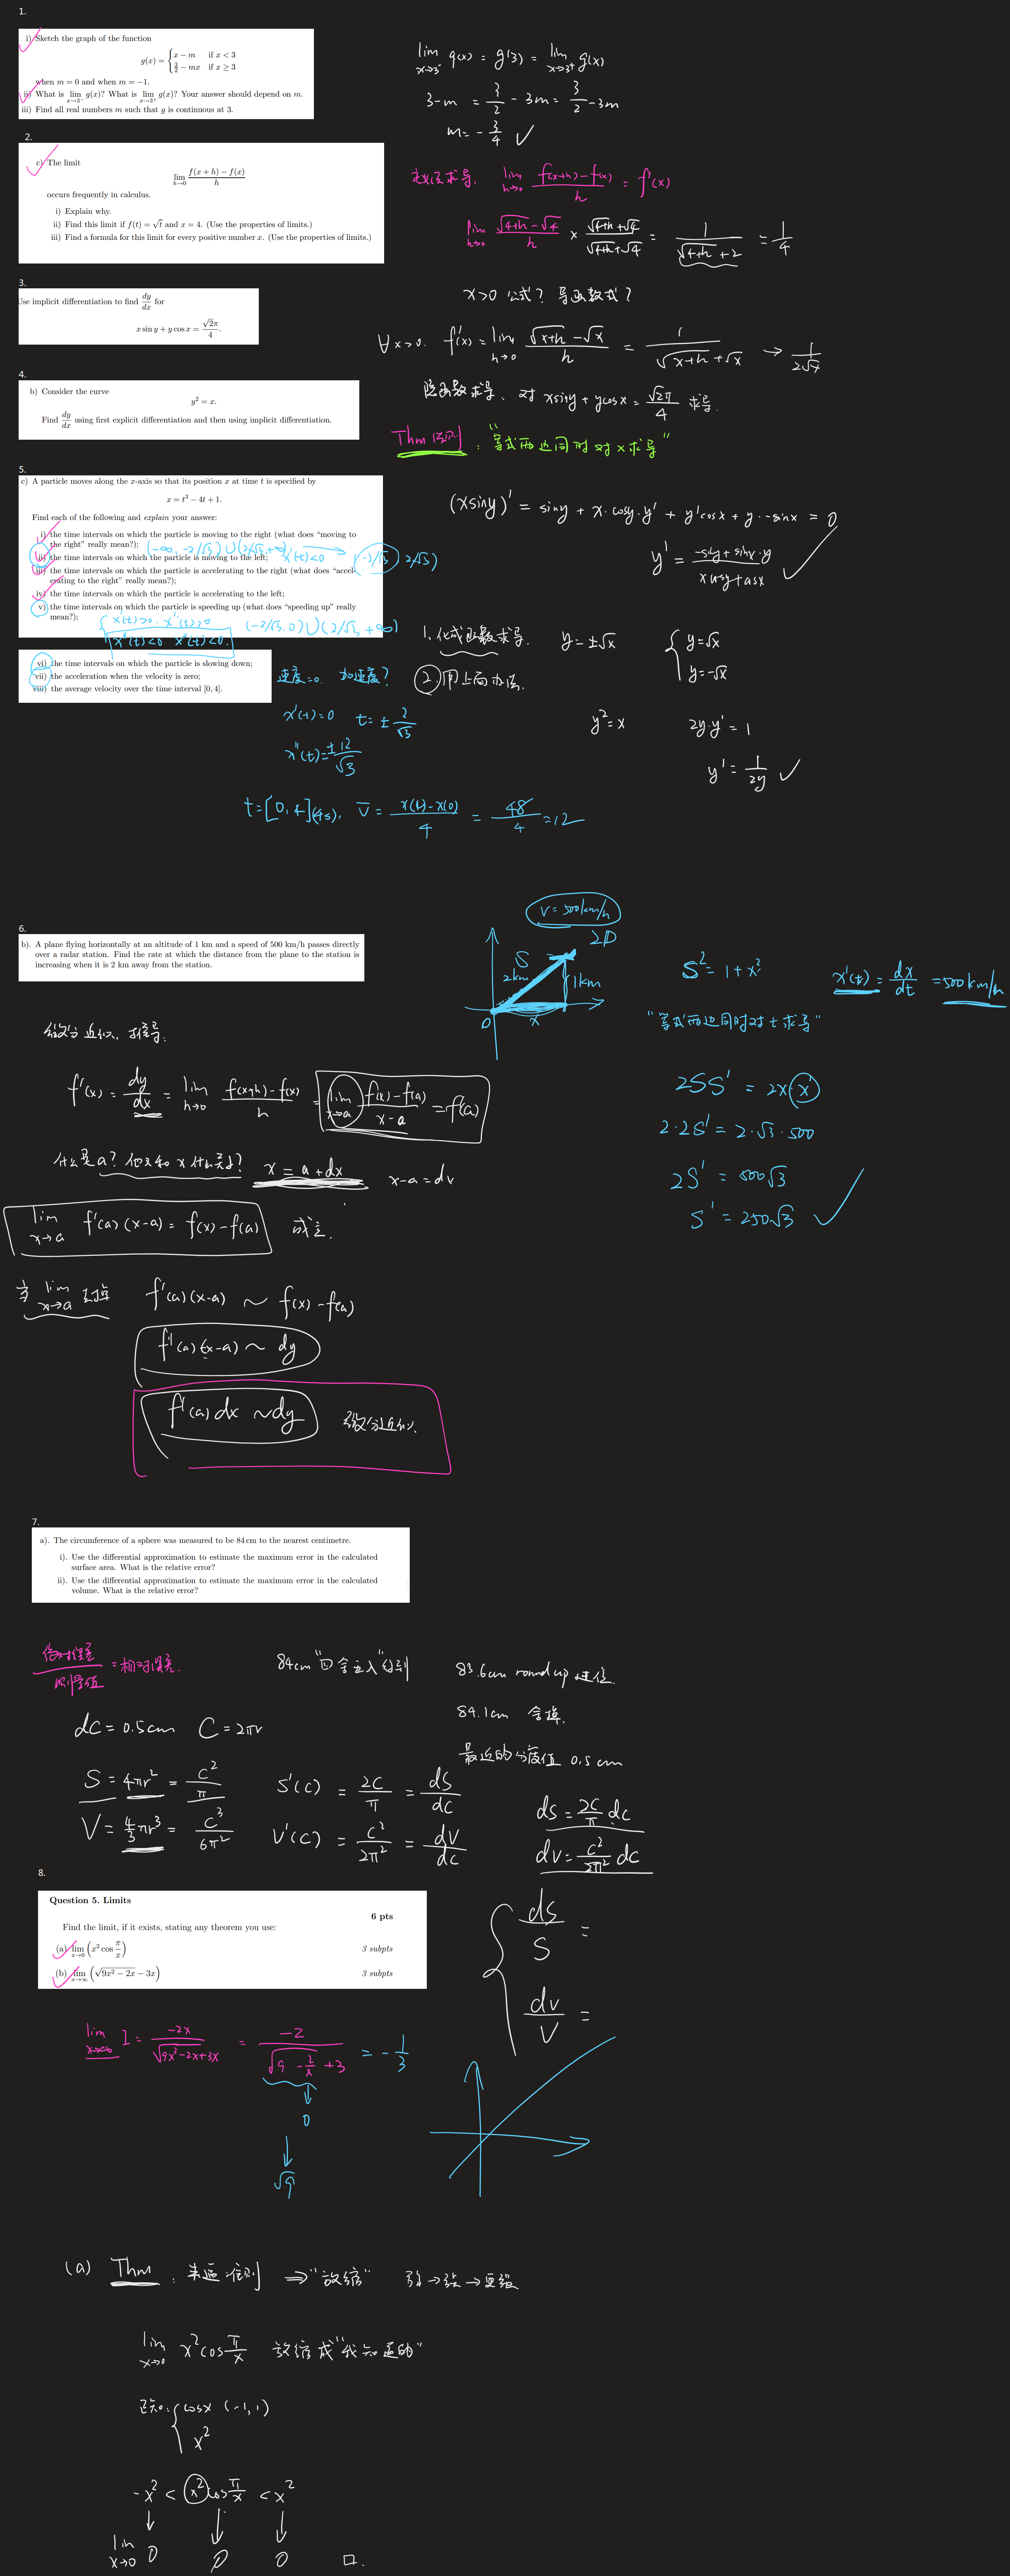 1.
i) Sketch the graph of the function
g(x) = { x − m if x < 3
3/2 − mx if x ≥ 3
when m = 0 and when m = −1.
ii) What is lim x→3⁻ g(x)? What is lim x→3⁺ g(x)? Your answer should depend on m.
iii) Find all real numbers m such that g is continuous at 3.
lim x→3⁻ g(x) = g(3) = lim x→3⁺ g(x)
3-m = 3/2 - 3m = 3/2 - 3m
m = - 3/4 ✓
2.
c) The limit
lim h→0 (f(x + h) − f(x))/h
occurs frequently in calculus.
i) Explain why.
ii) Find this limit if f(t) = √t and x = 4. (Use the properties of limits.)
iii) Find a formula for this limit for every positive number x. (Use the properties of limits.)
定义法求导. lim h→0 (f(x+h)-f(x))/h = f'(x)
lim h→0 (√4+h - √4)/h × (√4+h + √4)/(√4+h + √4) = 1/(√4+h + 2) = 1/4
x>0 公式? 导函数式?
∀x>0. f'(x) = lim h→0 (√x+h - √x)/h = 1/(√x+h + √x) → 1/2√x
3.
Use implicit differentiation to find dy/dx for
x sin y + y cos x = √2π/4.
隐函数求导. 对 xsiny + ycosx = √2π/4 求导.
Thm 法则: "等式两边同时对x求导"
(xsiny)' = siny + x·cosy·y' + y'cosx + y·-sinx = 0
y' = (-siny + sinx·y)/(xcosy+cosx) ✓
4.
b) Consider the curve
y² = x.
Find dy/dx using first explicit differentiation and then using implicit differentiation.
1. 化成函数求导. y = ±√x { y=√x
y=-√x
2. 用上面办法.
y² = x 2y·y' = 1
y' = 1/2y ✓
5.
c) A particle moves along the x-axis so that its position x at time t is specified by
x = t³ − 4t + 1.
Find each of the following and explain your answer:
i) the time intervals on which the particle is moving to the right (what does “moving to
the right” really mean?);
(-∞, -2/√3) ∪ (2/√3, +∞)
ii) the time intervals on which the particle is moving to the left;
x'(t)<0 (-2/√3, 2/√3)
iii) the time intervals on which the particle is accelerating to the right (what does “accel-
erating to the right” really mean?);
iv) the time intervals on which the particle is accelerating to the left;
v) the time intervals on which the particle is speeding up (what does “speeding up” really
mean?);
{ x'(t)>0. x''(t)>0
x'(t)<0 x''(t)<0.
(-2/√3, 0) ∪ (2/√3, +∞)
vi) the time intervals on which the particle is slowing down;
vii) the acceleration when the velocity is zero;
viii) the average velocity over the time interval [0, 4].
速度=0. 加速度?
x'(t)=0 t = ± 2/√3
x''(t) = ±12/√3
t=[0,4](4s). v̄ = (x(4)-x(0))/4 = 48/4 = 12
6.
b). A plane flying horizontally at an altitude of 1 km and a speed of 500 km/h passes directly
over a radar station. Find the rate at which the distance from the plane to the station is
increasing when it is 2 km away from the station.
v = 500km/h
2D
S
2km
1km
O
x
S² = 1 + x²
x'(t) = dx/dt = 500km/h
"等式两边同时对t求导"
2SS' = 2x·x'
2·2S' = 2·√3·500
2S' = 500√3
S' = 250√3 ✓
微分近似. 推导.
f'(x) = dy/dx = lim h→0 (f(x+h)-f(x))/h = lim x→a (f(x)-f(a))/(x-a) = f'(a)
什么是a? 他又和x什么关系? x = a+dx x-a=dx
lim x→a f'(a)(x-a) = f(x)-f(a) 成立.
当 lim x→a f'(a)(x-a) ~ f(x)-f(a)
f'(a)(x-a) ~ dy
f'(a)dx ~ dy 微分近似.
7.
a). The circumference of a sphere was measured to be 84 cm to the nearest centimetre.
i). Use the differential approximation to estimate the maximum error in the calculated
surface area. What is the relative error?
ii). Use the differential approximation to estimate the maximum error in the calculated
volume. What is the relative error?
= 相对误差.
测量值
84cm "四舍五入"得到
83.6cm round up 进位.
84.1cm 舍掉.
最近的分度值 0.5cm
dC = 0.5cm C = 2πr
S = 4πr² = C²/π S'(C) = 2C/π = dS/dC
V = 4/3 πr³ = C³/6π² V'(C) = C²/2π² = dV/dC
dS = 2C/π dC
dV = C²/2π² dC
{ dS/S =
dV/V =
8.
Question 5. Limits
6 pts
Find the limit, if it exists, stating any theorem you use:
(a) lim x→0 (x² cos π/x) 3 subpts
(b) lim x→∞ (√9x² − 2x − 3x) 3 subpts
lim x→∞ I = -2x/(√9x²-2x+3x) = -2/(√9 - 2/x + 3) = - 1/3
0
√9
(a) Thm: 夹逼准则 ⇒ "放缩"
lim x→0 x²cos π/x 放缩成"我知道的"
已知: { cosx (-1,1)
x²
-x² < x²cos π/x < x²
lim x→0 0 0 0 □.